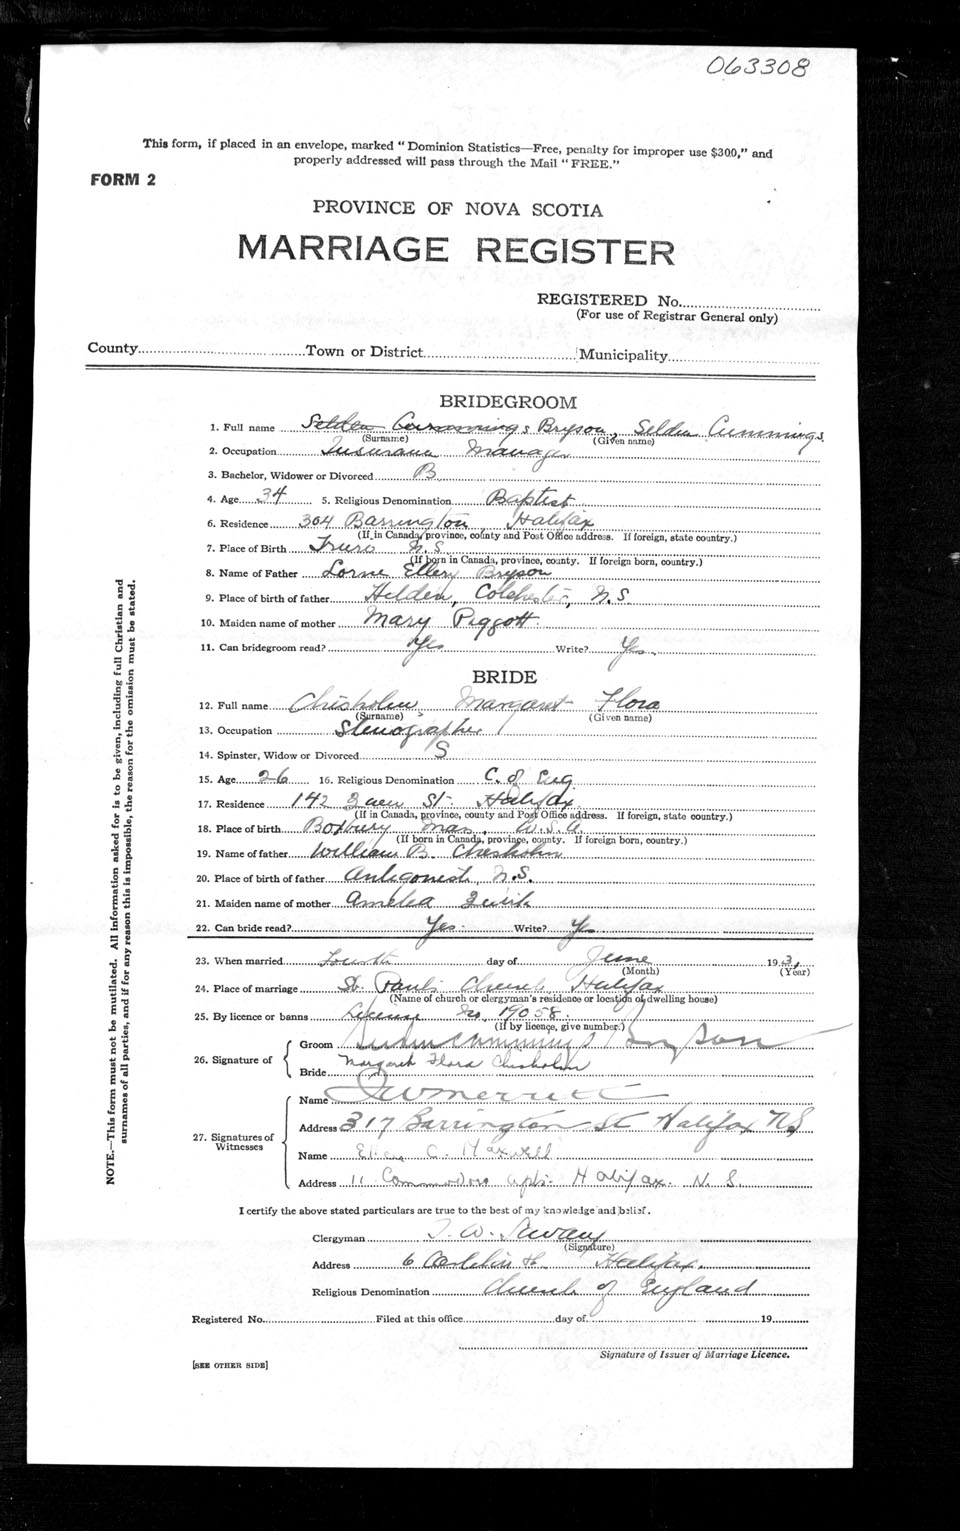 063308
This form, if placed in an envelope, marked "Dominion Statistics—Free, penalty for improper use $300," and
properly addressed will pass through the Mail "FREE."
FORM 2
PROVINCE OF NOVA SCOTIA
MARRIAGE REGISTER
REGISTERED No.
(For use of Registrar General only)
County Town or District Municipality
BRIDEGROOM
1. Full name Selden Cummings Bryson, Selden Cummings
(Surname) (Given name)
2. Occupation Insurance Manager
3. Bachelor, Widower or Divorced B
4. Age 34 5. Religious Denomination Baptist
6. Residence 304 Barrington, Halifax
(If in Canada, province, county and Post Office address. If foreign, state country.)
7. Place of Birth Truro N.S
(If born in Canada, province, county. If foreign born, country.)
8. Name of Father Lorne Ellery Bryson
9. Place of birth of father Hilden, Colchester, N.S
10. Maiden name of mother Mary Piggott
11. Can bridegroom read? Yes Write? Yes.
BRIDE
12. Full name Chisholm Margaret Flora
(Surname) (Given name)
13. Occupation Stenographer
14. Spinster, Widow or Divorced S
15. Age 26 16. Religious Denomination C. of Eng
17. Residence 142 St. Halifax
(If in Canada, province, county and Post Office address. If foreign, state country.)
18. Place of birth Roxbury Mas, U.S.A.
(If born in Canada, province, county. If foreign born, country.)
19. Name of father William B. Chisholm
20. Place of birth of father Antigonish, N.S.
21. Maiden name of mother Amelia
22. Can bride read? Yes. Write? Yes
23. When married Fourth day of June 193
(Month) (Year)
24. Place of marriage St. Paul's Church Halifax
(Name of church or clergyman's residence or location of dwelling house)
25. By licence or banns License No. 19058.
(If by licence, give number.)
26. Signature of Groom Selden Cummings Bryson
Bride Margaret Flora Chisholm
27. Signatures of Witnesses
Name
Address 317 Barrington St Halifax NS
Name C. Maxwell
Address 11 Commodore Apts. Halifax. N.S.
I certify the above stated particulars are true to the best of my knowledge and belief.
Clergyman T. W. Savary
(Signature)
Address 6 Halifax.
Religious Denomination Church of England
Registered No. Filed at this office day of 19
Signature of Issuer of Marriage Licence.
[SEE OTHER SIDE]
NOTE.—This form must not be mutilated. All information asked for is to be given, including full Christian and
surnames of all parties, and if for any reason this is impossible, the reason for the omission must be stated.